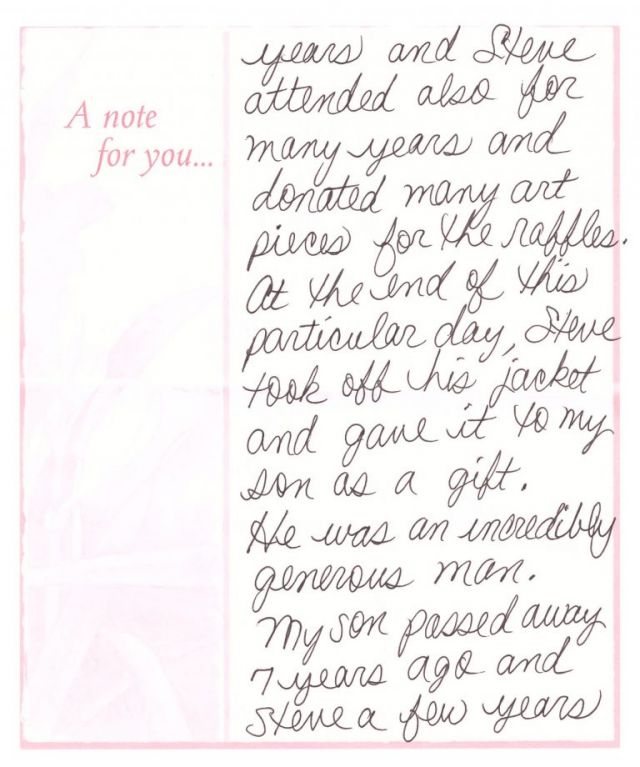 A note
for you...
years and Steve
attended also for
many years and
donated many art
pieces for the raffles.
At the end of this
particular day, Steve
took off his jacket
and gave it to my
son as a gift.
He was an incredibly
generous man.
My son passed away
7 years ago and
Steve a few years